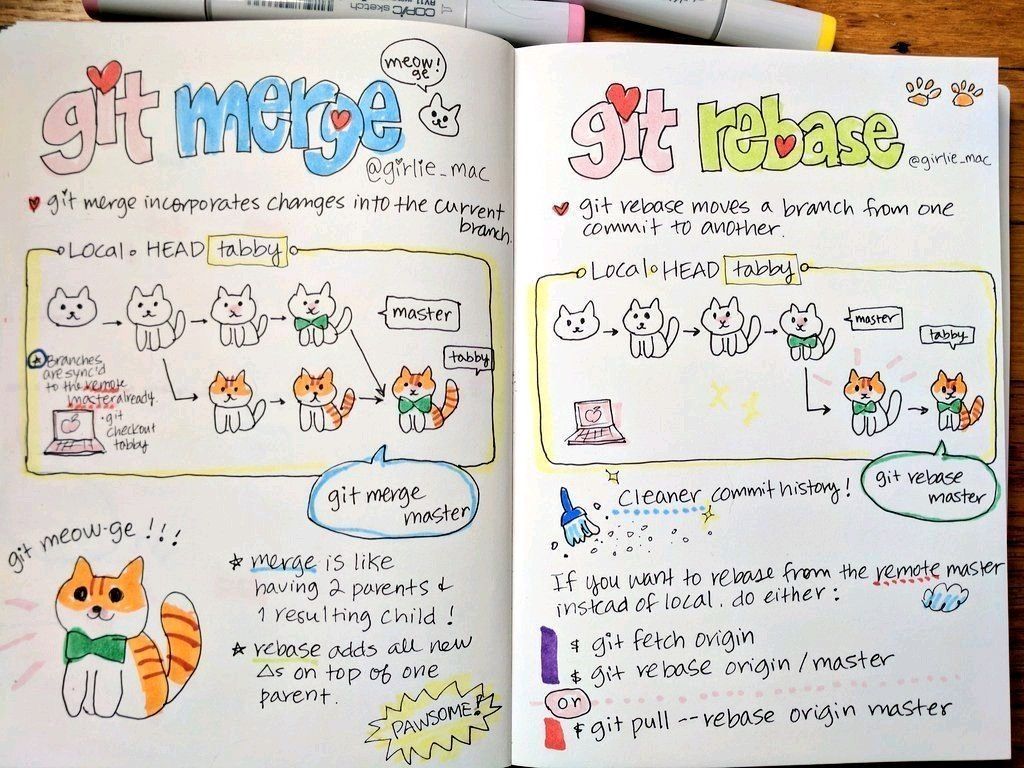 COPIC sketch
git merge
meow! ge
@girlie_mac
git merge incorporates changes into the current
branch.
Local HEAD tabby
master
tabby
Branches
are sync'd
to the remote
master already.
git
checkout
tabby
git merge
master
git meow-ge !!!
merge is like
having 2 parents &
1 resulting child!
rebase adds all new
Δs on top of one
parent.
PAWSOME!
git rebase
@girlie_mac
git rebase moves a branch from one
commit to another.
Local HEAD tabby
master
tabby
git rebase
master
cleaner commit history!
If you want to rebase from the remote master
instead of local, do either:
$ git fetch origin
$ git rebase origin/master
or
$ git pull --rebase origin master